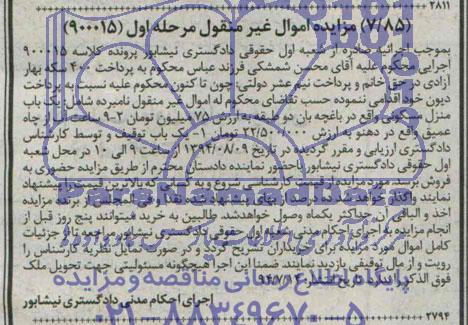 ۲۸۱۱
(۷/۸۵) مزایده اموال غیر منقول مرحله اول (۹۰۰۰۱۵)
بموجب اجرائیه صادره از شعبه اول حقوقی دادگستری نیشابور پرونده کلاسه ۹۰۰۰۱۵
اجرایی محکوم علیه آقای محسن شمشکی فرزند عباس محکوم به پرداخت ۴۰۰ سکه بهار
آزادی در حق خانم و پرداخت نیم عشر دولتی، چون تا کنون محکوم علیه نسبت به پرداخت
دیون خود اقدامی ننموده حسب تقاضای محکوم له اموال غیر منقول نامبرده شامل: یک باب
منزل مسکونی واقع در باغچه بان دو طبقه به ارزش ۷۵ میلیون تومان ۲-۹ ساعت از چاه
عمیق واقع در دهنو به ارزش ۲۲/۵۰۰/۰۰۰ تومان ۱- یک باب توقیف و توسط کارشناس
دادگستری ارزیابی و مقرر گردیده در تاریخ ۱۳۹۴/۰۸/۰۹ از ساعت ۹ الی ۱۰ در محل شعبه
اول حقوقی دادگستری نیشابور با حضور نماینده دادستان محترم از طریق مزایده حضوری به
فروش برسد. مزایده از قیمت کارشناسی شروع و به کسانی که بالاترین قیمت را پیشنهاد
نمایند واگذار خواهد شد. ده درصد از بهای پیشنهاد شده نقدا و فی المجلس از برنده مزایده
اخذ و الباقی آن حداکثر یکماه وصول خواهد شد. طالبین به خرید میتوانند پنج روز قبل از
انجام مزایده به اجرای احکام مدنی محل شعبه اول حقوقی دادگستری نیشابور مراجعه تا از جزئیات
کامل اموال مورد مزایده برای خریداران تشریح گردد و در صورت تمایل نظریه کارشناس را
رویت و از مال توقیفی بازدید نمایند. ضمنا این اجرا هیچگونه مسئولیتی جهت تحویل ملک
فوق الذکر را ندارد. تاریخ انتشار: ۹۴/۷/۱۴
اجرای احکام مدنی دادگستری نیشابور
۲۷۹۴
پایگاه اطلاع رسانی مناقصه و مزایده
۰۲۱-۸۸۳۴۹۶۷۰-۵